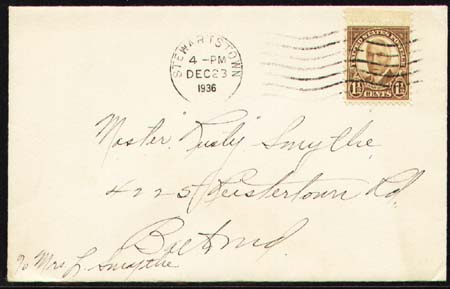 STEWARTSTOWN
4 - PM
DEC 23
1936
UNITED STATES POSTAGE
1½ CENTS 1½
Master "Rusty" Smythe
4225 Reistertown Rd.
Balto Md.
% Mrs L. Smythe